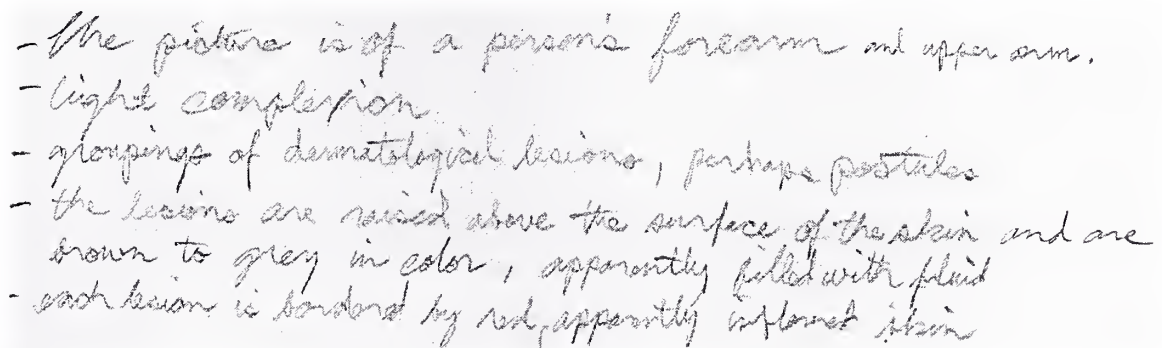 - The picture is of a person's forearm and upper arm.
- light complexion
- groupings of dermatological lesions, perhaps postules
- the lesions are raised above the surface of the skin and are
brown to grey in color, apparently filled with fluid
- each lesion is borderd by red, apparently inflamed skin